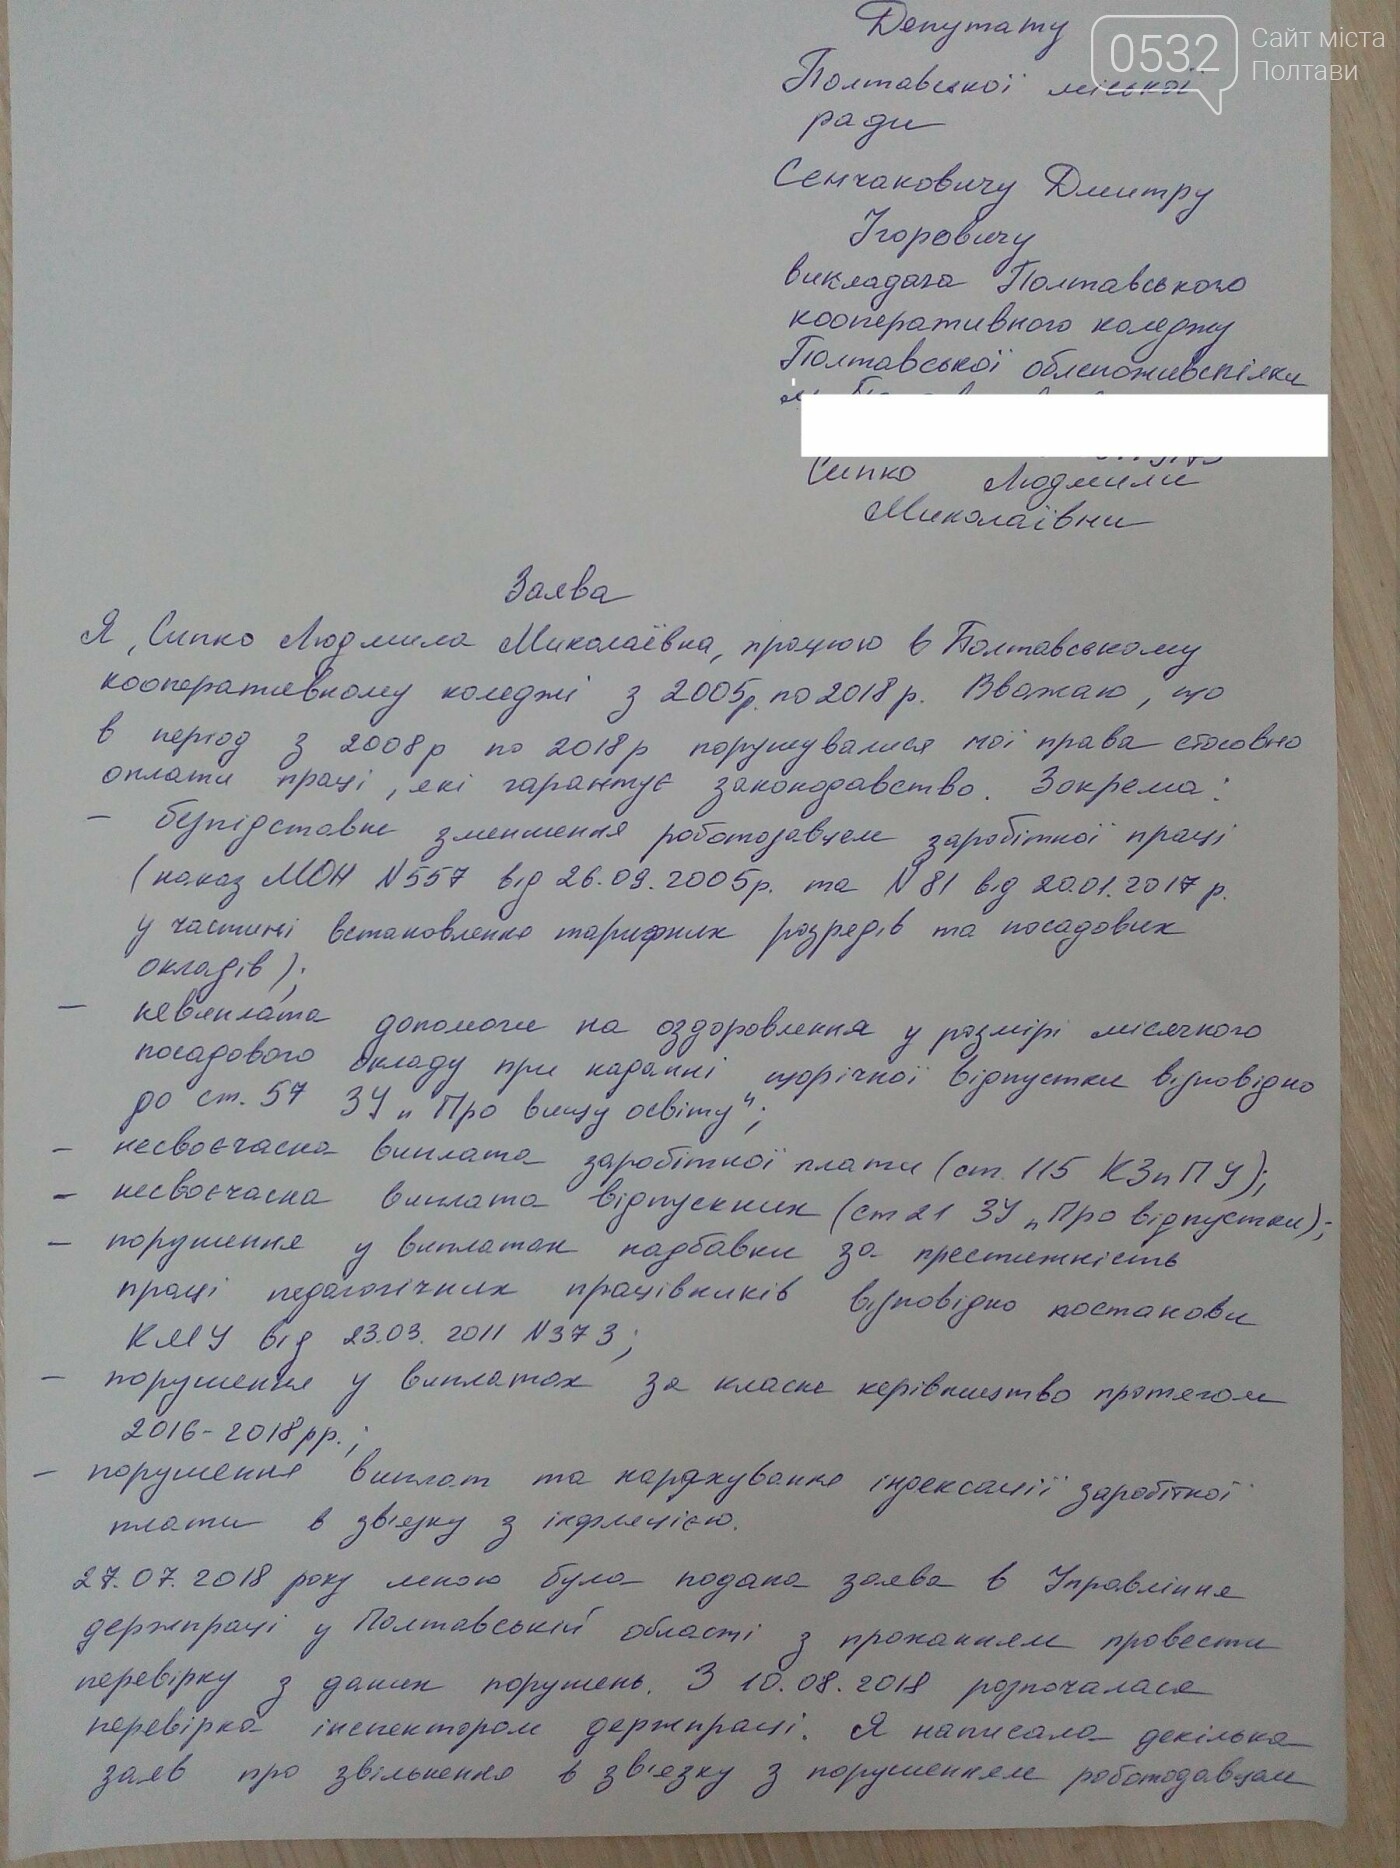 Депутату
0532
Сайт міста
Полтави
Полтавської міської
ради
Сенчаковичу Дмитру
Ігоровичу
викладача Полтавського
кооперативного коледжу
Полтавської облспоживспілки
Сипко Людмили
Миколаївни
Заява
Я, Сипко Людмила Миколаївна, працюю в Полтавському
кооперативному коледжі з 2005р. по 2018р. Вважаю, що
в період з 2008р по 2018р порушувалися мої права стосовно
оплати праці, які гарантує законодавство. Зокрема:
- безпідставне зменшення роботодавцем заробітної праці
(наказ МОН N557 від 26.09.2005р. та N81 від 20.01.2017р.
у частині встановлення тарифних розрядів та посадових
окладів);
- невиплата допомоги на оздоровлення у розмірі місячного
посадового окладу при наданні щорічної відпустки відповідно
до ст. 57 ЗУ „Про вищу освіту";
- несвоєчасна виплата заробітної плати (ст. 115 КЗпПУ);
- несвоєчасна виплата відпускних (ст 21 ЗУ „Про відпустки);
- порушення у виплатах надбавки за престижність
праці педагогічних працівників відповідно постанови
КМУ від 23.03. 2011 N373;
- порушення у виплатах за класне керівництво протягом
2016-2018рр.;
- порушення виплат та нарахування індексації заробітної
плати в зв'язку з інфляцією.
27.07.2018 року мною була подана заява в Управління
держпраці у Полтавській області з проханням провести
перевірку з даних порушень. З 10.08.2018 розпочалася
перевірка інспектором держпраці. Я написала декілька
заяв про звільнення в зв'язку з порушенням роботодавцем